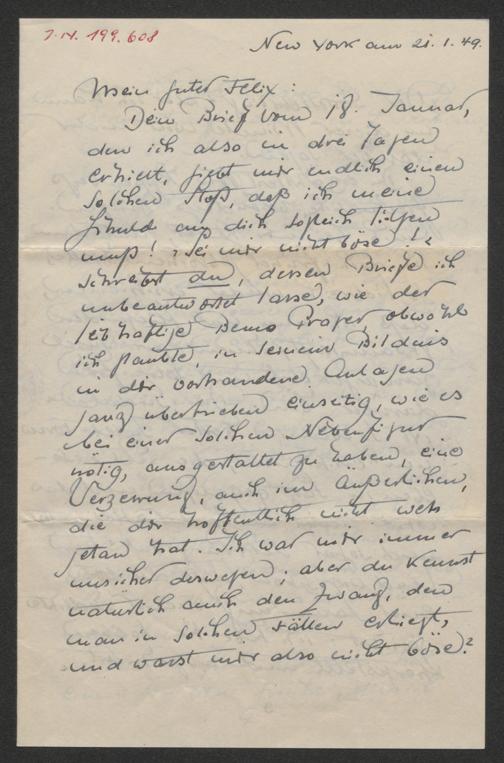 J.N. 199.608
New York am 21.1.49.
Mein guter Felix:
Dein Brief vom 18. Januar,
den ich also in drei Tagen
erhielt, giebt mir endlich einen
solchen Stoß, daß ich meine
Schuld an dich sogleich tilgen
muß! „Sei mir nicht böse!“
schreibst du, dessen Briefe ich
unbeantwortet lasse, wie der
leibhaftige Benno Prager, obwohl
ich glaubte, in seinem Bildnis
in dir vorhandene Anlagen
ganz übertrieben einseitig, wie es
bei einer solchen Nebenfigur
nötig, ausgestaltet zu haben, eine
Verzerrung, auch im Äußerlichen,
die dir hoffentlich nicht weh
getan hat. Ich war mir immer
unsicher deswegen; aber du kennst
natürlich auch den Zwang, dem
man in solchen Fällen erliegt,
und warst mir also nicht böse?